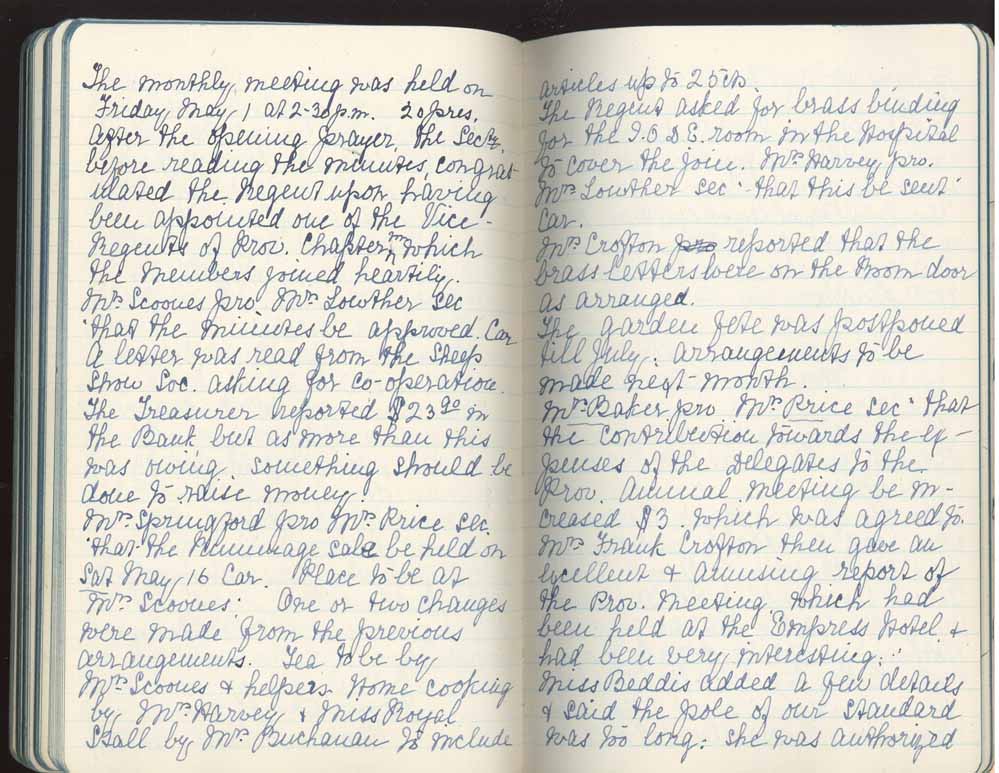 The monthly meeting was held on
Friday, May 1 at 2-30 p.m. 20 pres.
After the opening prayer, the Secty.
before reading the minutes, congrat-
ulated the Regent upon having
been appointed one of the Vice-
Regents of Prov. Chapter, in which
the members joined heartily.
Mrs Scoones pro Mrs Lowther sec
"that the minutes be approved. Car
A letter was read from the Sheep
Show Soc. asking for co-operation.
The Treasurer reported $23.90 in
the Bank but as more than this
was owing, something should be
done to raise money.
Mrs Springford pro Mrs Price sec.
"that the Rummage Sale be held on
Sat May 16 Car. Place to be at
Mrs Scoones'. One or two changes
were made from the previous
arrangements. Tea to be by
Mrs Scoones & helpers. Home cooking
by Mrs Harvey & Miss Royal
Stall by Mrs Buchanan to include
articles up to 25cts.
The Regent asked for brass binding
for the I.O.D.E. room in the Hospital
to cover the join. Mrs Harvey pro.
Mrs Lowther sec "that this be sent"
Car.
Mrs Crofton pro reported that the
brass letters were on the Room door
as arranged.
The garden fete was postponed
till July. Arrangements to be
made next month.
Mrs Baker pro Mrs Price sec "that
the contribution towards the ex-
penses of the Delegates to the
Prov. Annual Meeting be in-
creased $3. which was agreed to.
Mrs Frank Crofton then gave an
excellent & amusing report of
the Prov. Meeting, which had
been held at the Empress Hotel &
had been very interesting.
Miss Beddis added a few details
& said the pole of our Standard
was too long: she was authorized